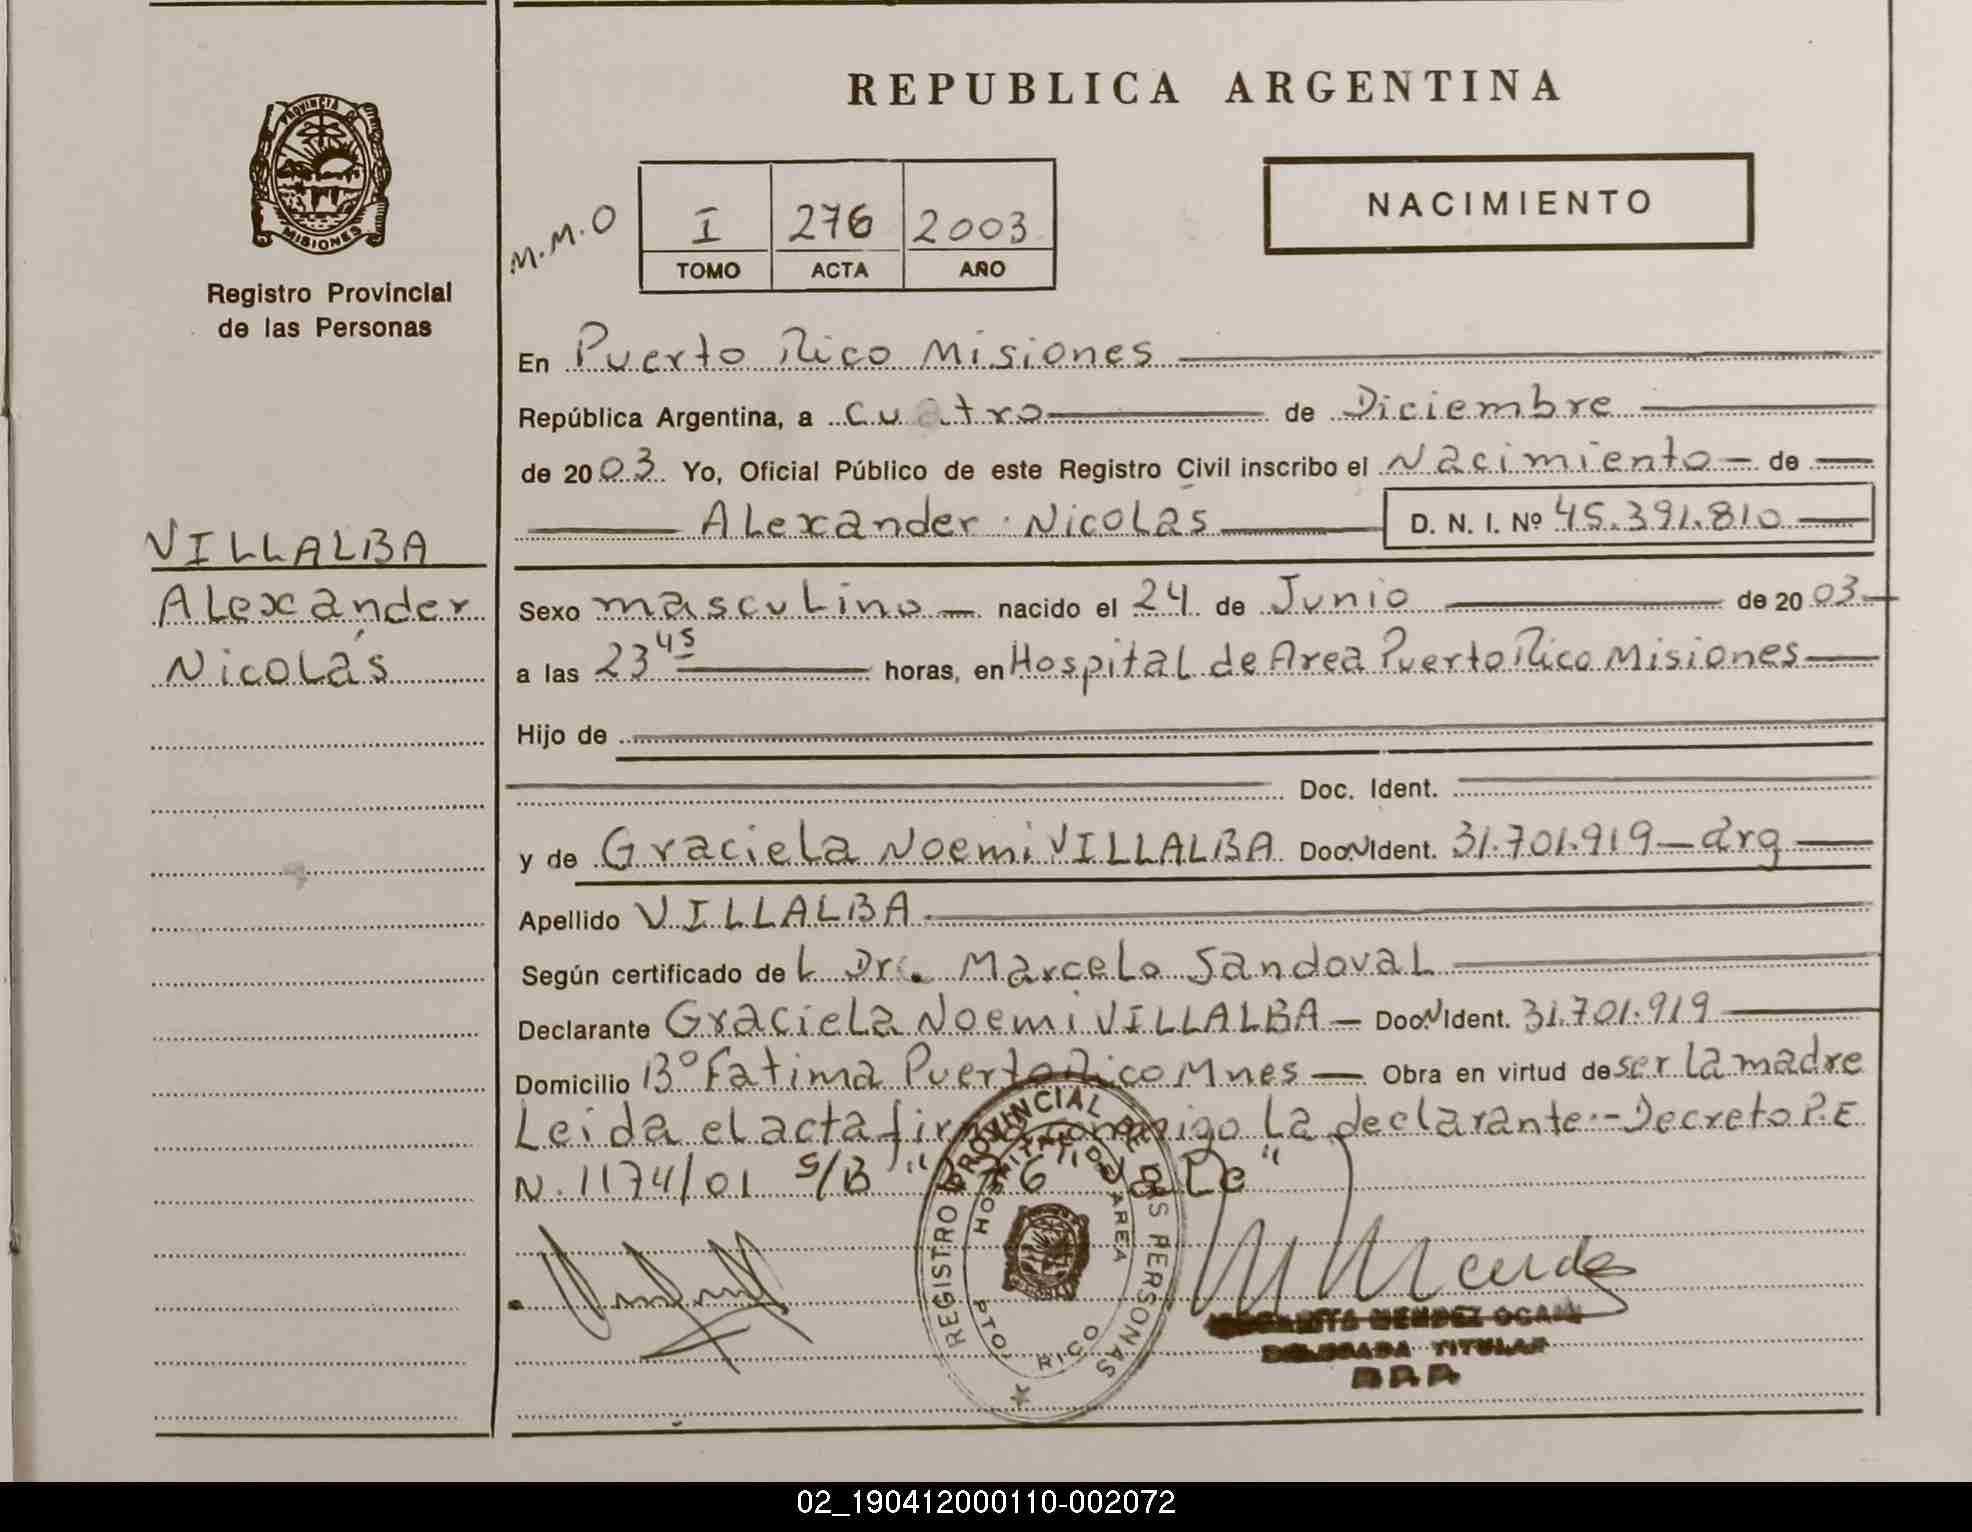 REPUBLICA ARGENTINA
PROVINCIA DE
MISIONES
Registro Provincial
de las Personas
M.M.O
I 276 2003
TOMO ACTA AÑO
NACIMIENTO
En Puerto Rico Misiones
República Argentina, a cuatro de Diciembre
de 2003 Yo, Oficial Público de este Registro Civil inscribo el Nacimiento de
Alexander Nicolás D. N. I. Nº 45.391.810
VILLALBA
Alexander
Nicolás
Sexo masculino nacido el 24 de Junio de 2003
a las 23 45 horas, en Hospital de Area Puerto Rico Misiones
Hijo de
Doc. Ident.
y de Graciela Noemi VILLALBA Doc. N Ident. 31.701.919 - arg
Apellido VILLALBA
Según certificado del Dr. Marcelo Sandoval
Declarante Graciela Noemi VILLALBA - Doc. N Ident. 31.701.919
Domicilio Bº Fatima Puerto Rico Mnes - Obra en virtud de ser la madre
Leida el acta firma conmigo la declarante.- Decreto P.E
N. 1174/01 S/B "276 Vale"
REGISTRO PROVINCIAL DE LAS PERSONAS
HOSPITAL DE AREA
PTO. RICO
MENDEZ OCAM
DELEGADA TITULAR
02_190412000110-002072